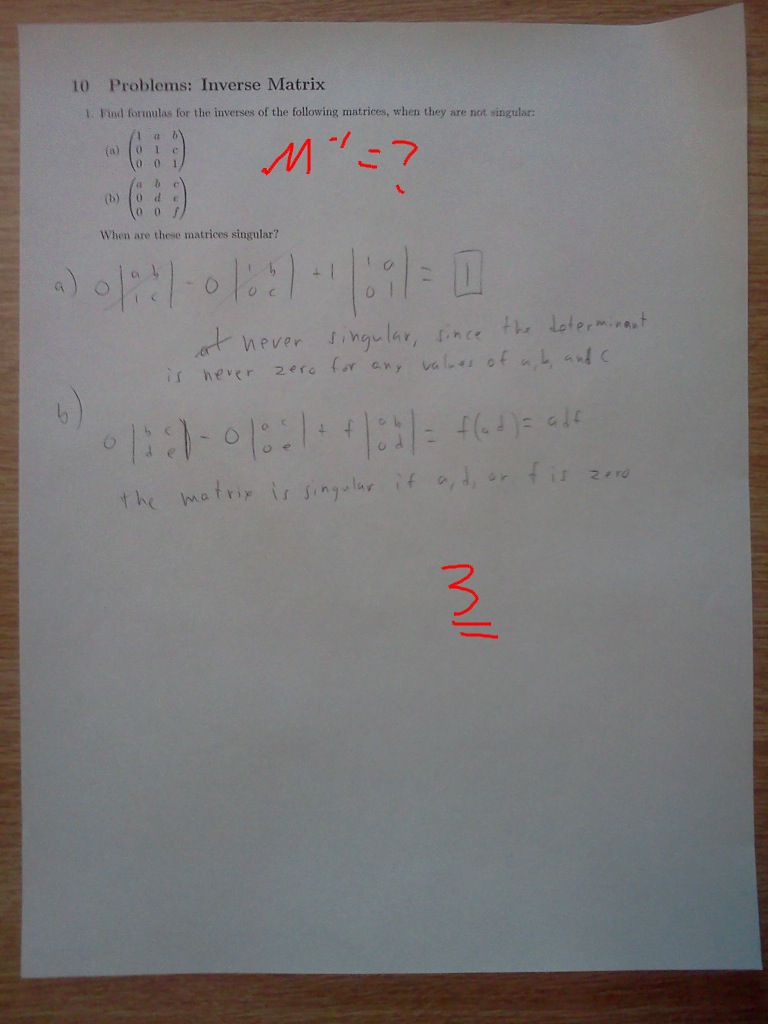 10 Problems: Inverse Matrix
1. Find formulas for the inverses of the following matrices, when they are not singular:
(a) (1 a b
0 1 c
0 0 1)
M⁻¹ = ?
(b) (a b c
0 d e
0 0 f)
When are these matrices singular?
a) 0 |a b
1 c| - 0 |1 b
0 c| + 1 |1 a
0 1| = 1
never singular, since the determinant
is never zero for any values of a, b, and c
b) 0 |b c
d e| - 0 |a c
0 e| + f |a b
0 d| = f(ad) = adf
the matrix is singular if a, d, or f is zero
3